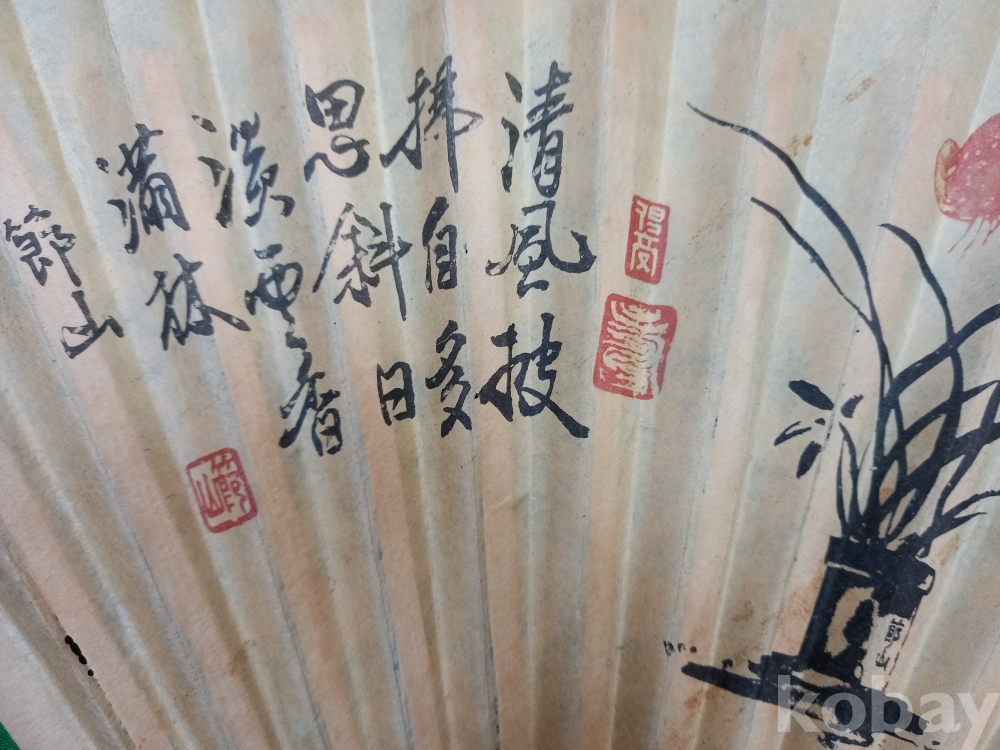 清風披
拂自多
思斜日
淡雲香
滿林
節山
節山
kobay